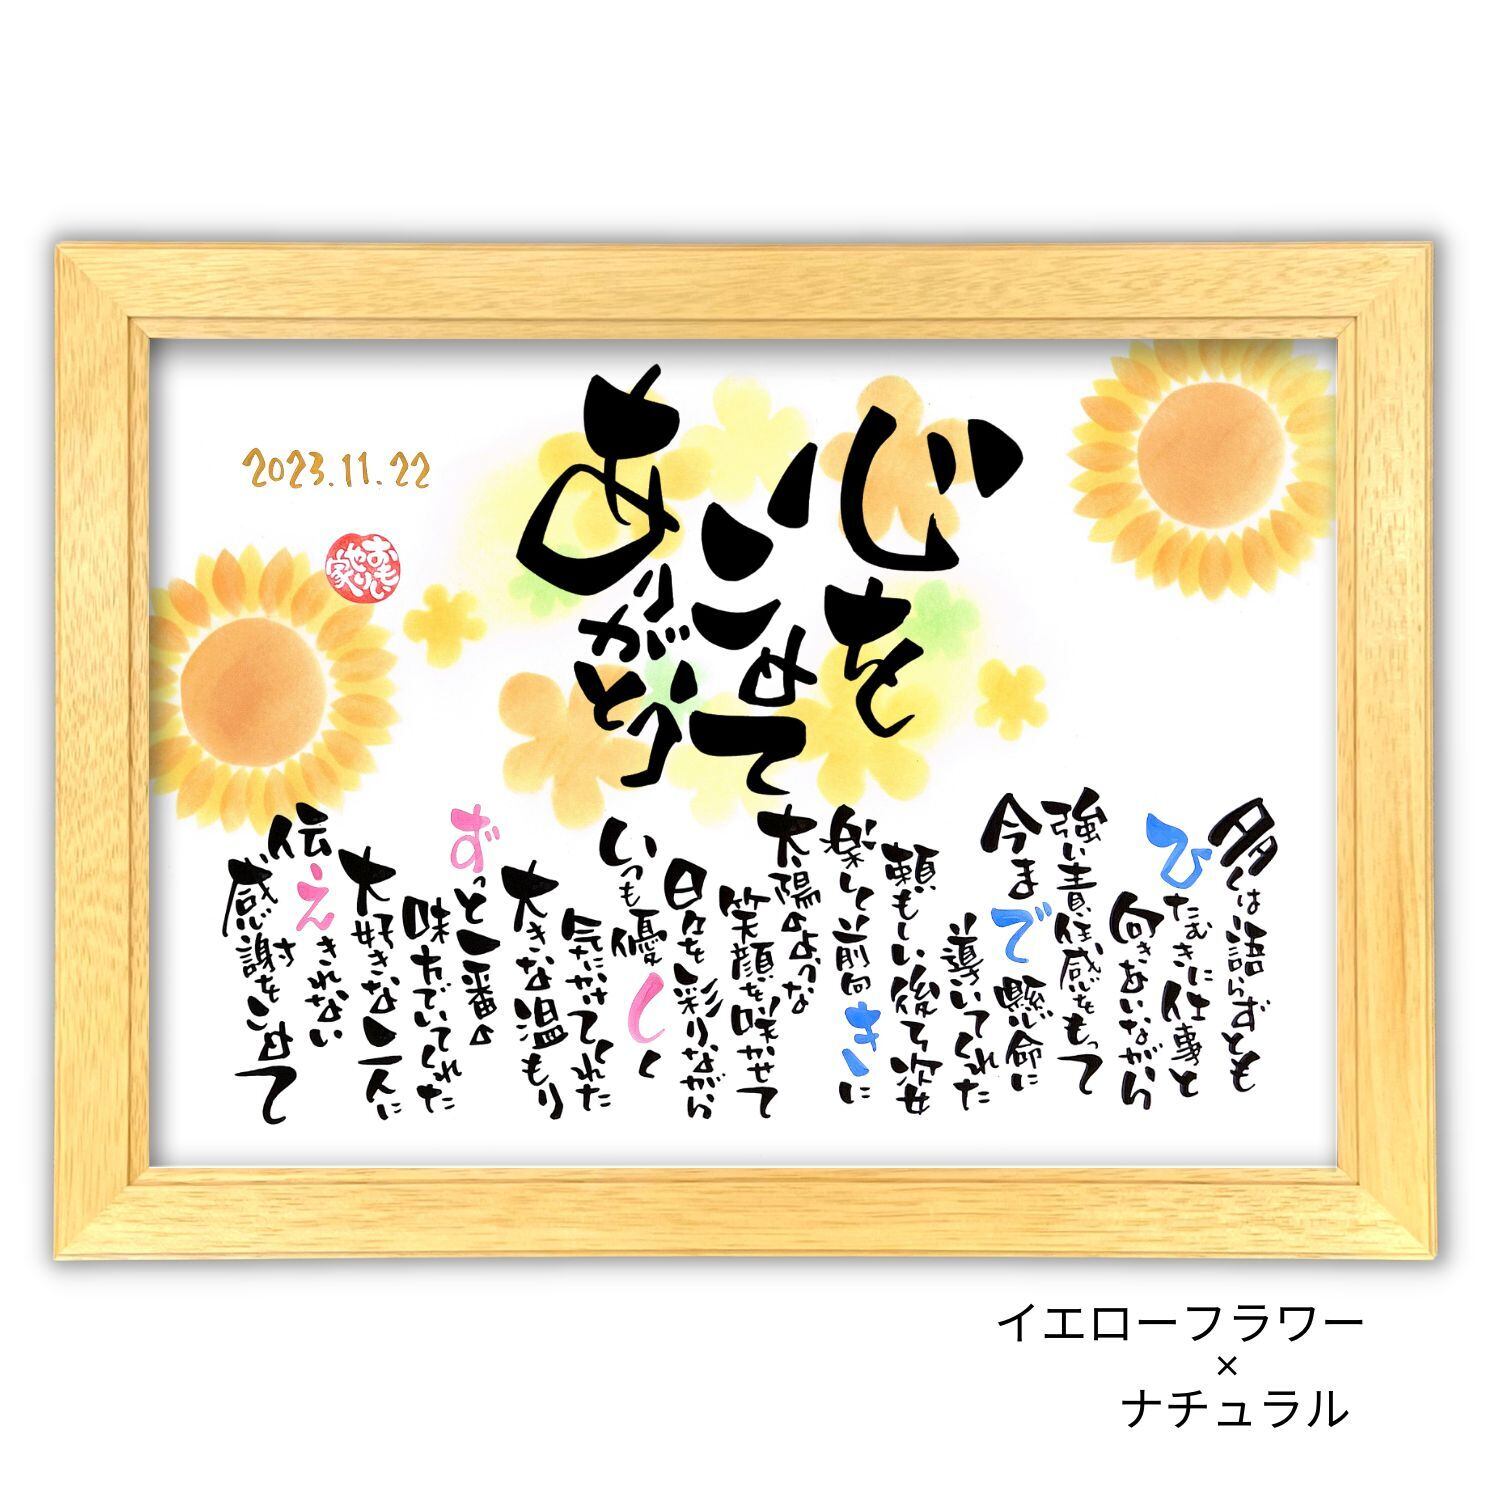 心を
こめて
ありがとう
2023.11.22
おもい
やり
家
多くは語らずとも
ひたむきに仕事と
向きあいながら
強い責任感をもって
今まで懸命に
導いてくれた
頼もしい後ろ姿
楽しく前向きに
太陽のような
笑顔を咲かせて
日々を彩りながら
いつも優しく
気にかけてくれた
大きな温もり
ずっと一番の
味方でいてくれた
大好きな二人に
伝えきれない
感謝をこめて
イエローフラワー
×
ナチュラル